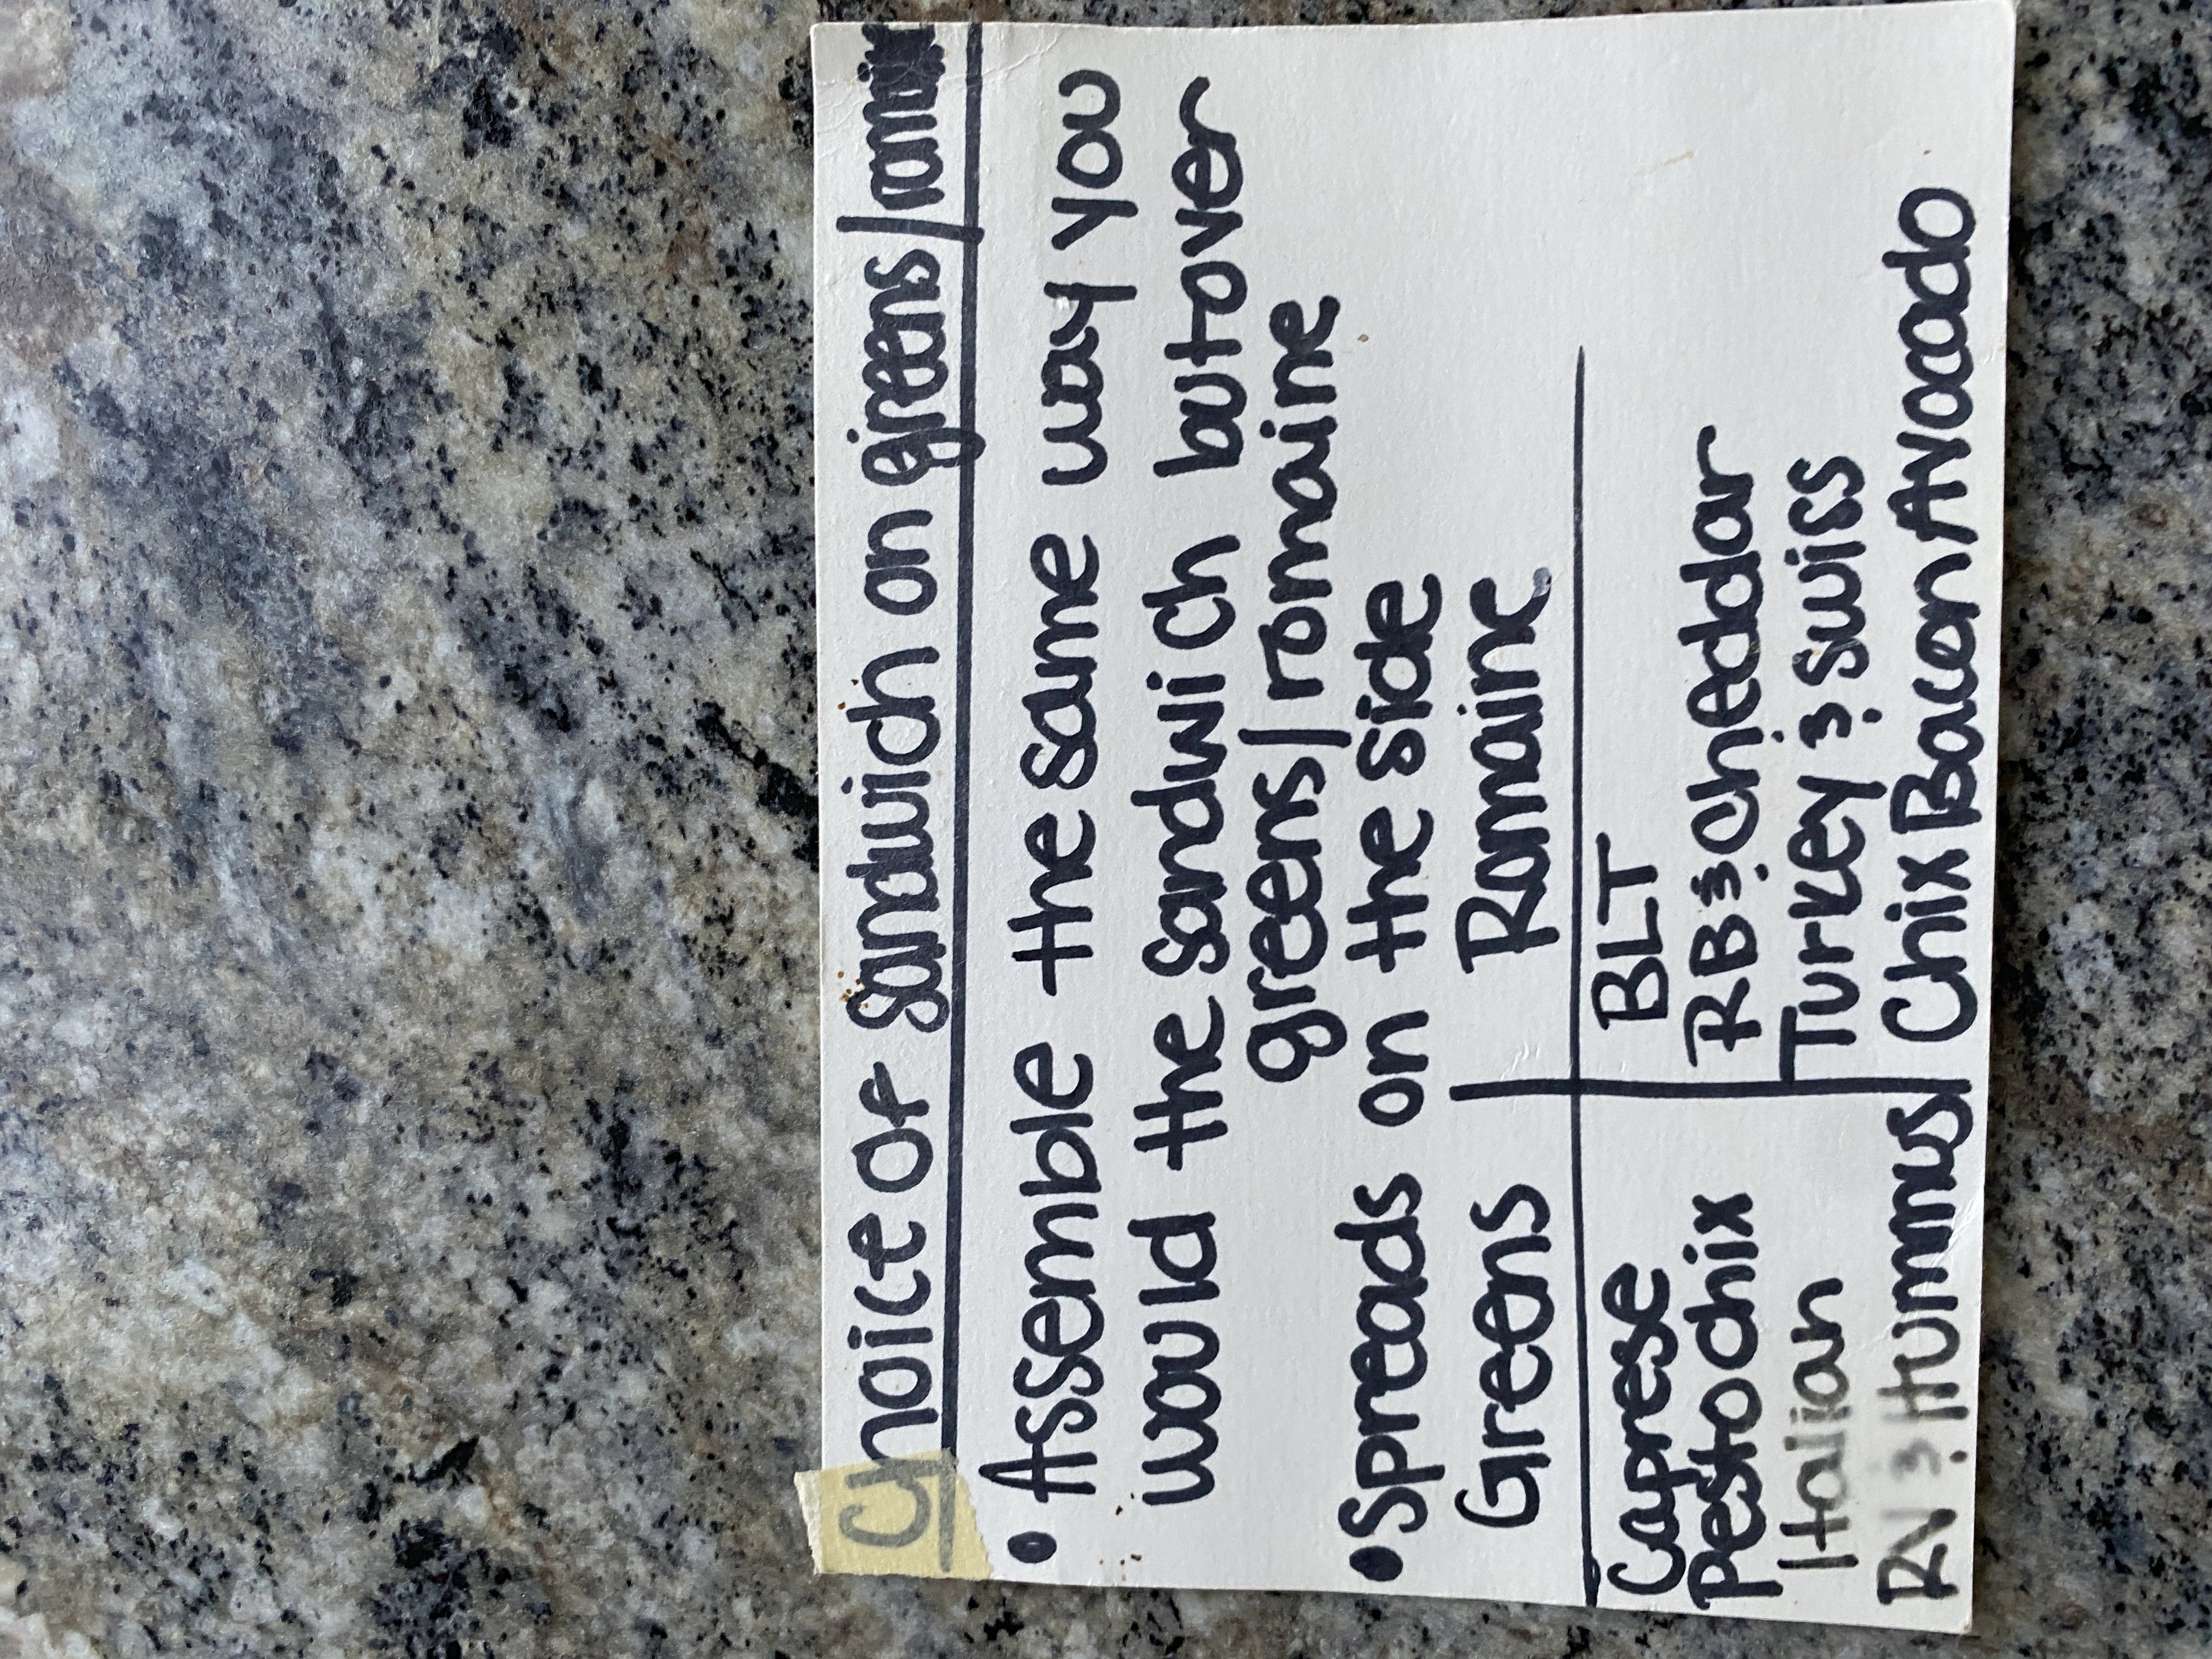 Choice of sandwich on greens/romaine
• Assemble the same way you
would the sandwich but over
greens/romaine
• Spreads on the side
Greens | Romaine
Caprese | BLT
Pestochix | RB & Cheddar
Italian | Turkey & Swiss
RV & Hummus | Chix Bacon Avocado